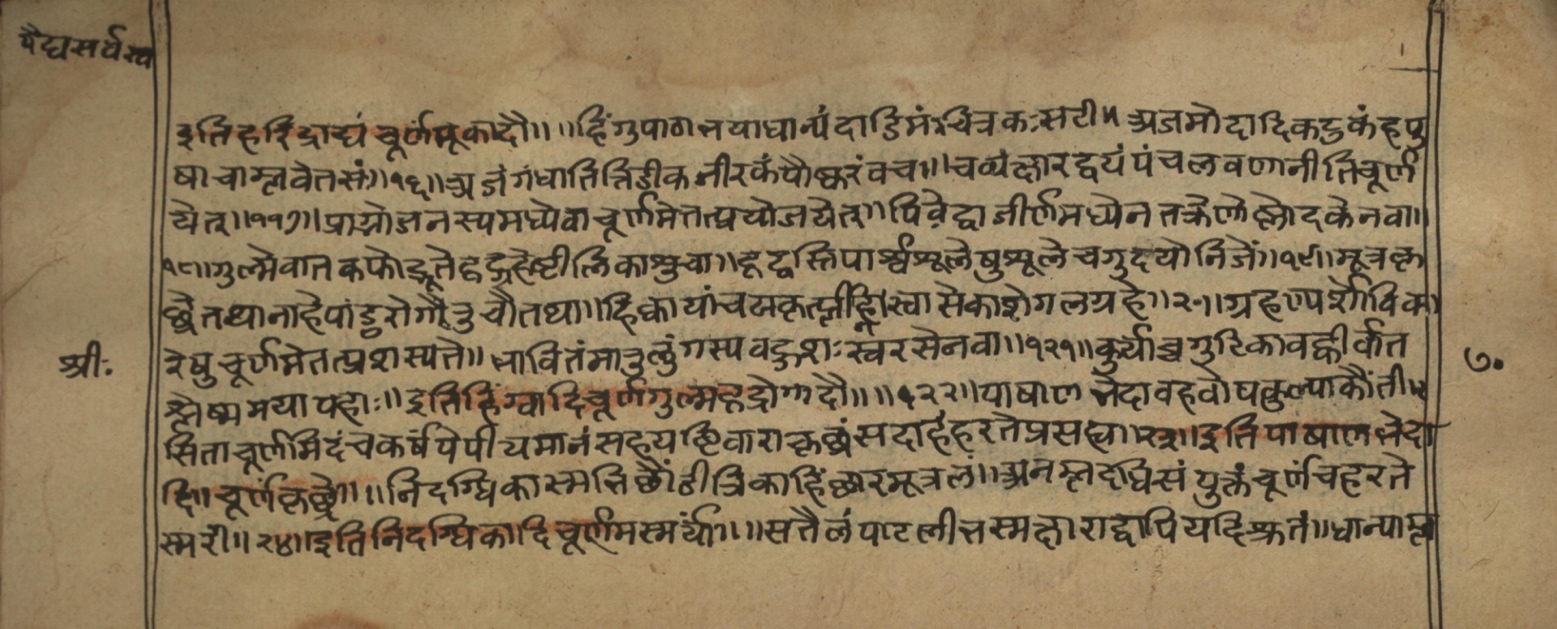 वैद्यसर्वस्व
इतिहरिद्राद्यं चूर्णंमूकादौ॥ ॥हिंगुपाठाभयाधान्यंदाडिमंःचित्रकःसटी॥ अजमोदात्रिकटुकंहपु
षाचाम्लवेतसं॥१६॥अजंगंधातिंतिडीकजीरकंपौष्करंवचा॥चव्यंक्षारद्वयंपंचलवणानीतिचूर्ण
येत्॥११७॥प्राग्भोजनस्यमध्येवाचूर्णमेतत्प्रयोजयेत्॥पिवेद्वाजीर्णमध्येनतक्रेणोष्णोदकेनवा॥
१८॥गुल्मेवातकफोद्भूतेहृद्ग्रहेष्टीलिकाशुचा॥हृद्वस्तिपार्श्वशूलेषुशूलेचगुदयोनिजें॥१९॥मूत्रकृ
छ्रेतथानाहेपांडुरोगौरुचौतथा॥हिक्कायांचयकृत्प्लीह्निस्वासेकाशेगलग्रहे॥२०॥ग्रहण्यर्शोविका
रेषुचूर्णमेतत्प्रशस्यते॥ भावितंमातुलुंगस्यवहुशःस्वरसेनवा॥१२१॥कुर्याच्चगुटिकावह्वीर्वात
श्लेष्ममयापहाः॥इतिहिंग्वादिचूर्णगुल्महृद्रोगादौ॥ ॥१२२॥पाषाणभेदावहवोषकुल्पाकौंती॥
सिताचूर्णमिदंचकर्षपेपीयमानंसहयष्टिवाराकृछ्रंसदाहंहरतेप्रसह्या॥२३॥इतिपाषाणभेदा
दि॥चूर्णंकृछ्रे॥ ॥निदग्धिकास्मभिछौंठीत्रिकाहिंछारमूत्रलं॥अनम्लदधिसंयुक्तंचूर्णंचहरते
स्मरी॥२४॥इतिनिदग्धिकादिचूर्णमस्मर्यां॥ ॥सतैलंपाटलीभस्मक्षाराद्वापियदिश्रुतं॥धान्याम्ल
श्रीः
७०